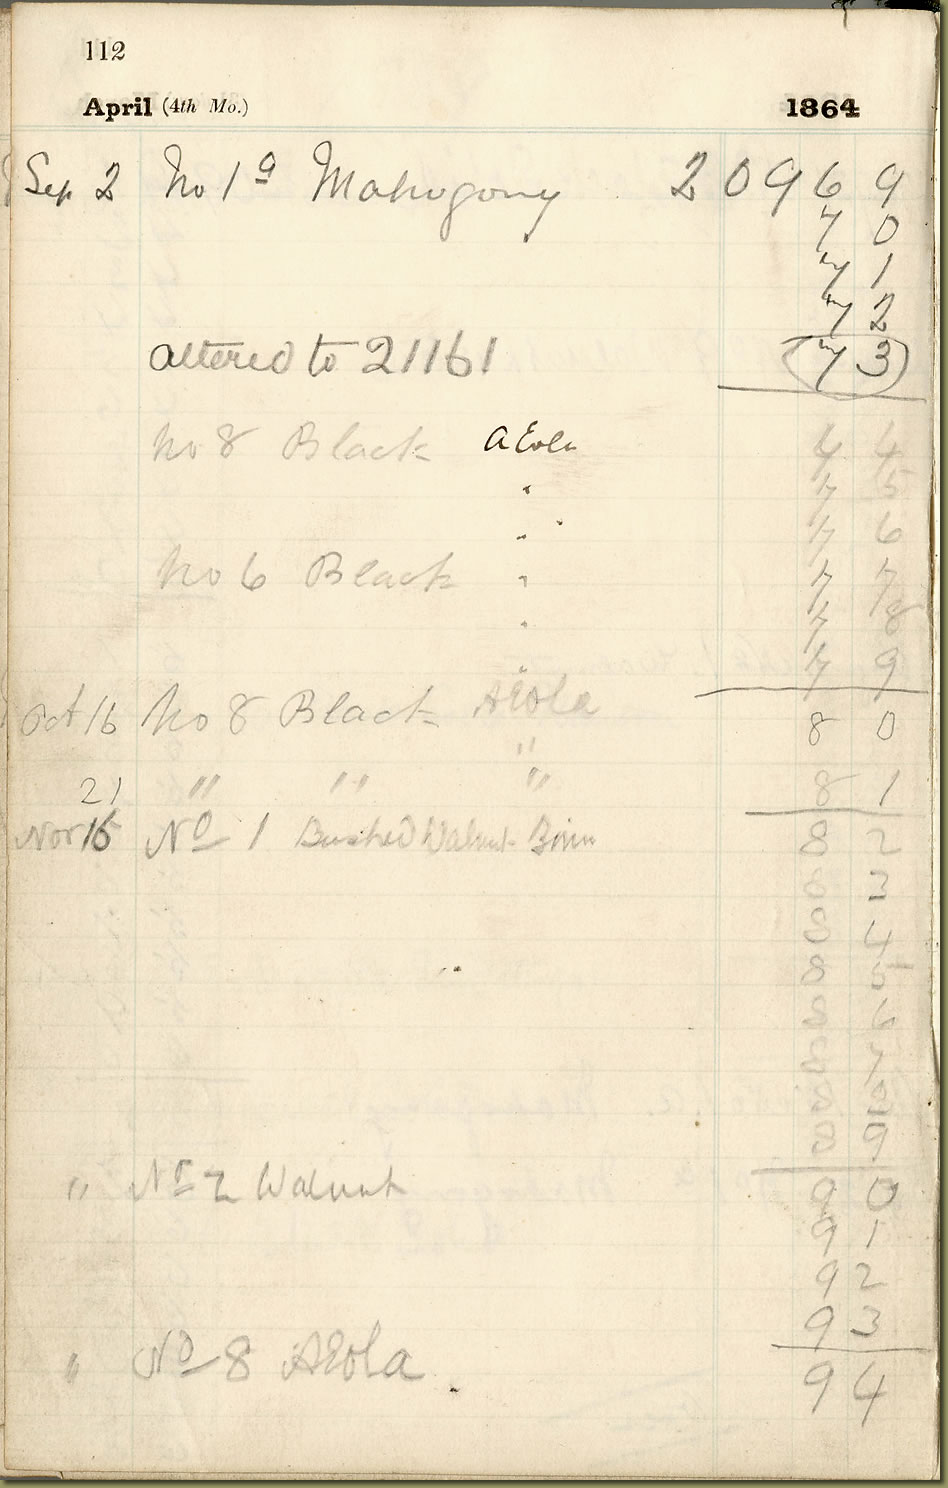 112
April (4th Mo.) 1864
Sep 2 No 1a Mahogony 20969
70
71
72
altered to 21161 73
No 8 Black AEola 74
" 75
" 76
No 6 Black " 77
" 78
" 79
Oct 16 No 8 Black AEola 80
"
21 " " " 81
Nov 15 No 1 Walnut 82
83
84
85
86
87
88
89
" No 2 Walnut 90
91
92
93
" No 8 AEola 94